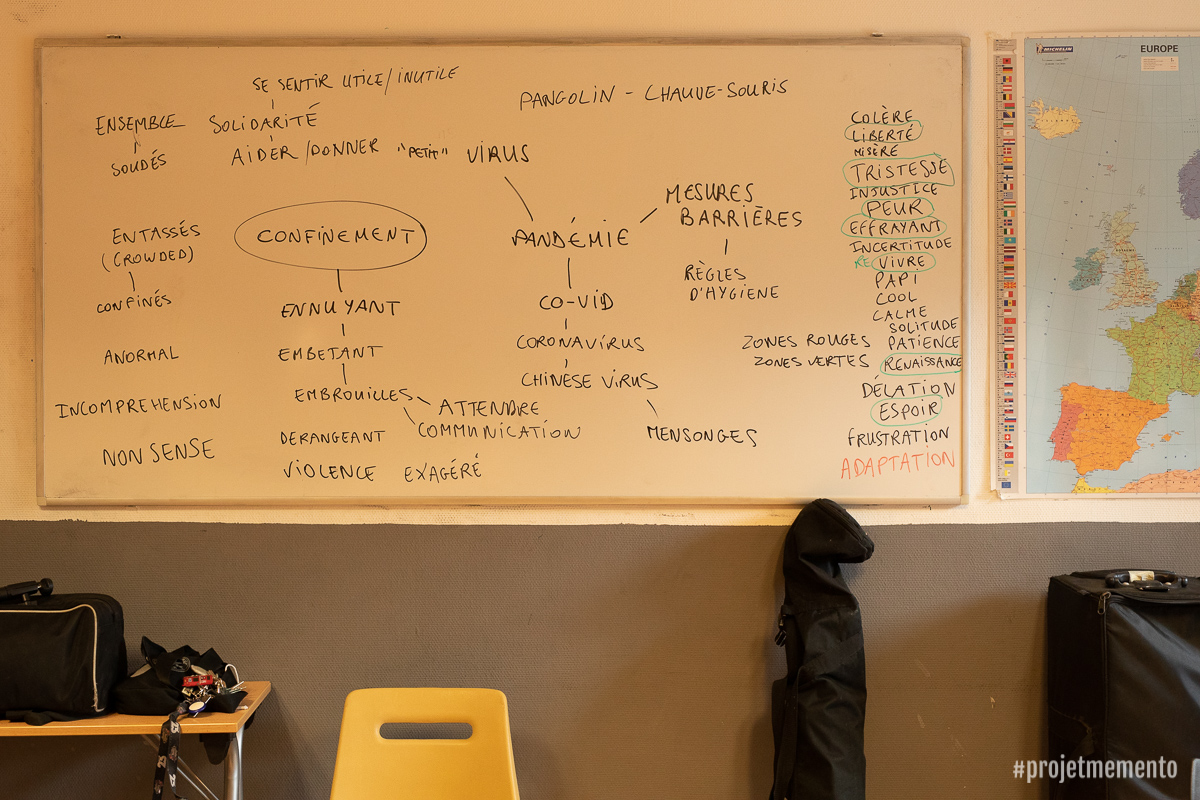 SE SENTIR UTILE/INUTILE
ENSEMBLE
SOLIDARITÉ
SOUDÉS
AIDER/DONNER
"PETIT" VIRUS
PANGOLIN - CHAUVE-SOURIS
ENTASSÉS
(CROWDED)
CONFINÉS
ANORMAL
INCOMPREHENSION
NON SENSE
CONFINEMENT
ENNUYANT
EMBETANT
EMBROUILLES
DERANGEANT
VIOLENCE EXAGÉRÉ
ATTENDRE
COMMUNICATION
PANDÉMIE
CO-VID
CORONAVIRUS
CHINESE VIRUS
MENSONGES
MESURES
BARRIÈRES
RÈGLES
D'HYGIENE
ZONES ROUGES
ZONES VERTES
COLÈRE
LIBERTÉ
MISÈRE
TRISTESSE
INJUSTICE
PEUR
EFFRAYANT
INCERTITUDE
RE VIVRE
PAPI
COOL
CALME
SOLITUDE
PATIENCE
RENAISSANCE
DÉLATION
ESPOIR
FRUSTRATION
ADAPTATION
MICHELIN
EUROPE
#projetmemento